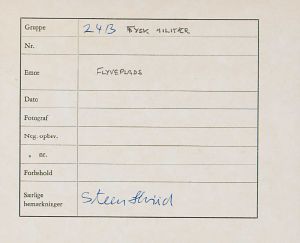 Gruppe 24B TYSK MILITÆR
Nr.
Emne FLYVEPLADS
Dato
Fotograf
Neg. opbev.
" nr.
Forbehold
Særlige
bemærkninger Steen Hvid